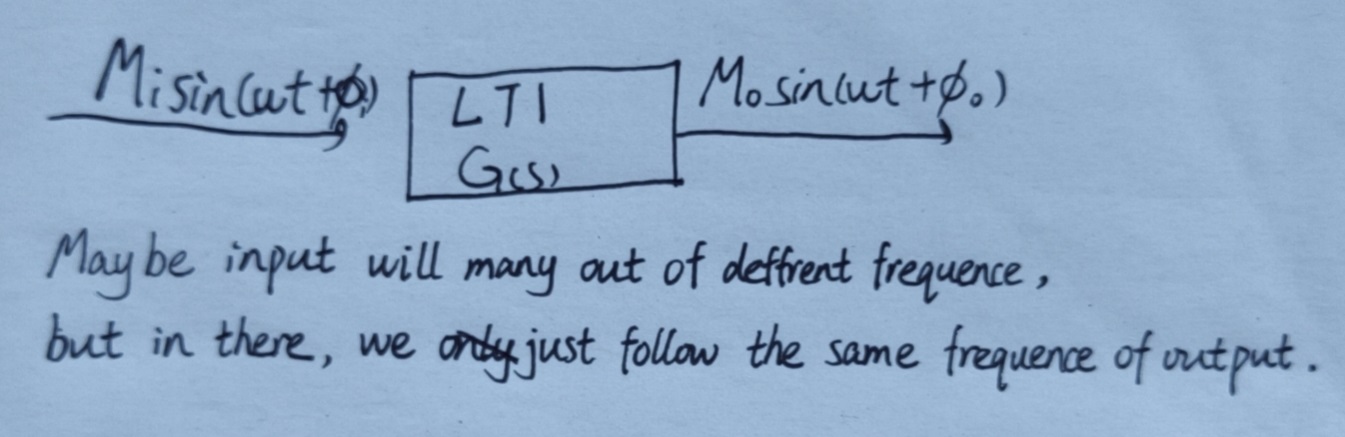 Mᵢsin(ωt+ϕᵢ)
LTI
G(s)
Mₒsin(ωt+ϕₒ)
Maybe input will many out of deffrent frequence,
but in there, we just follow the same frequence of output.